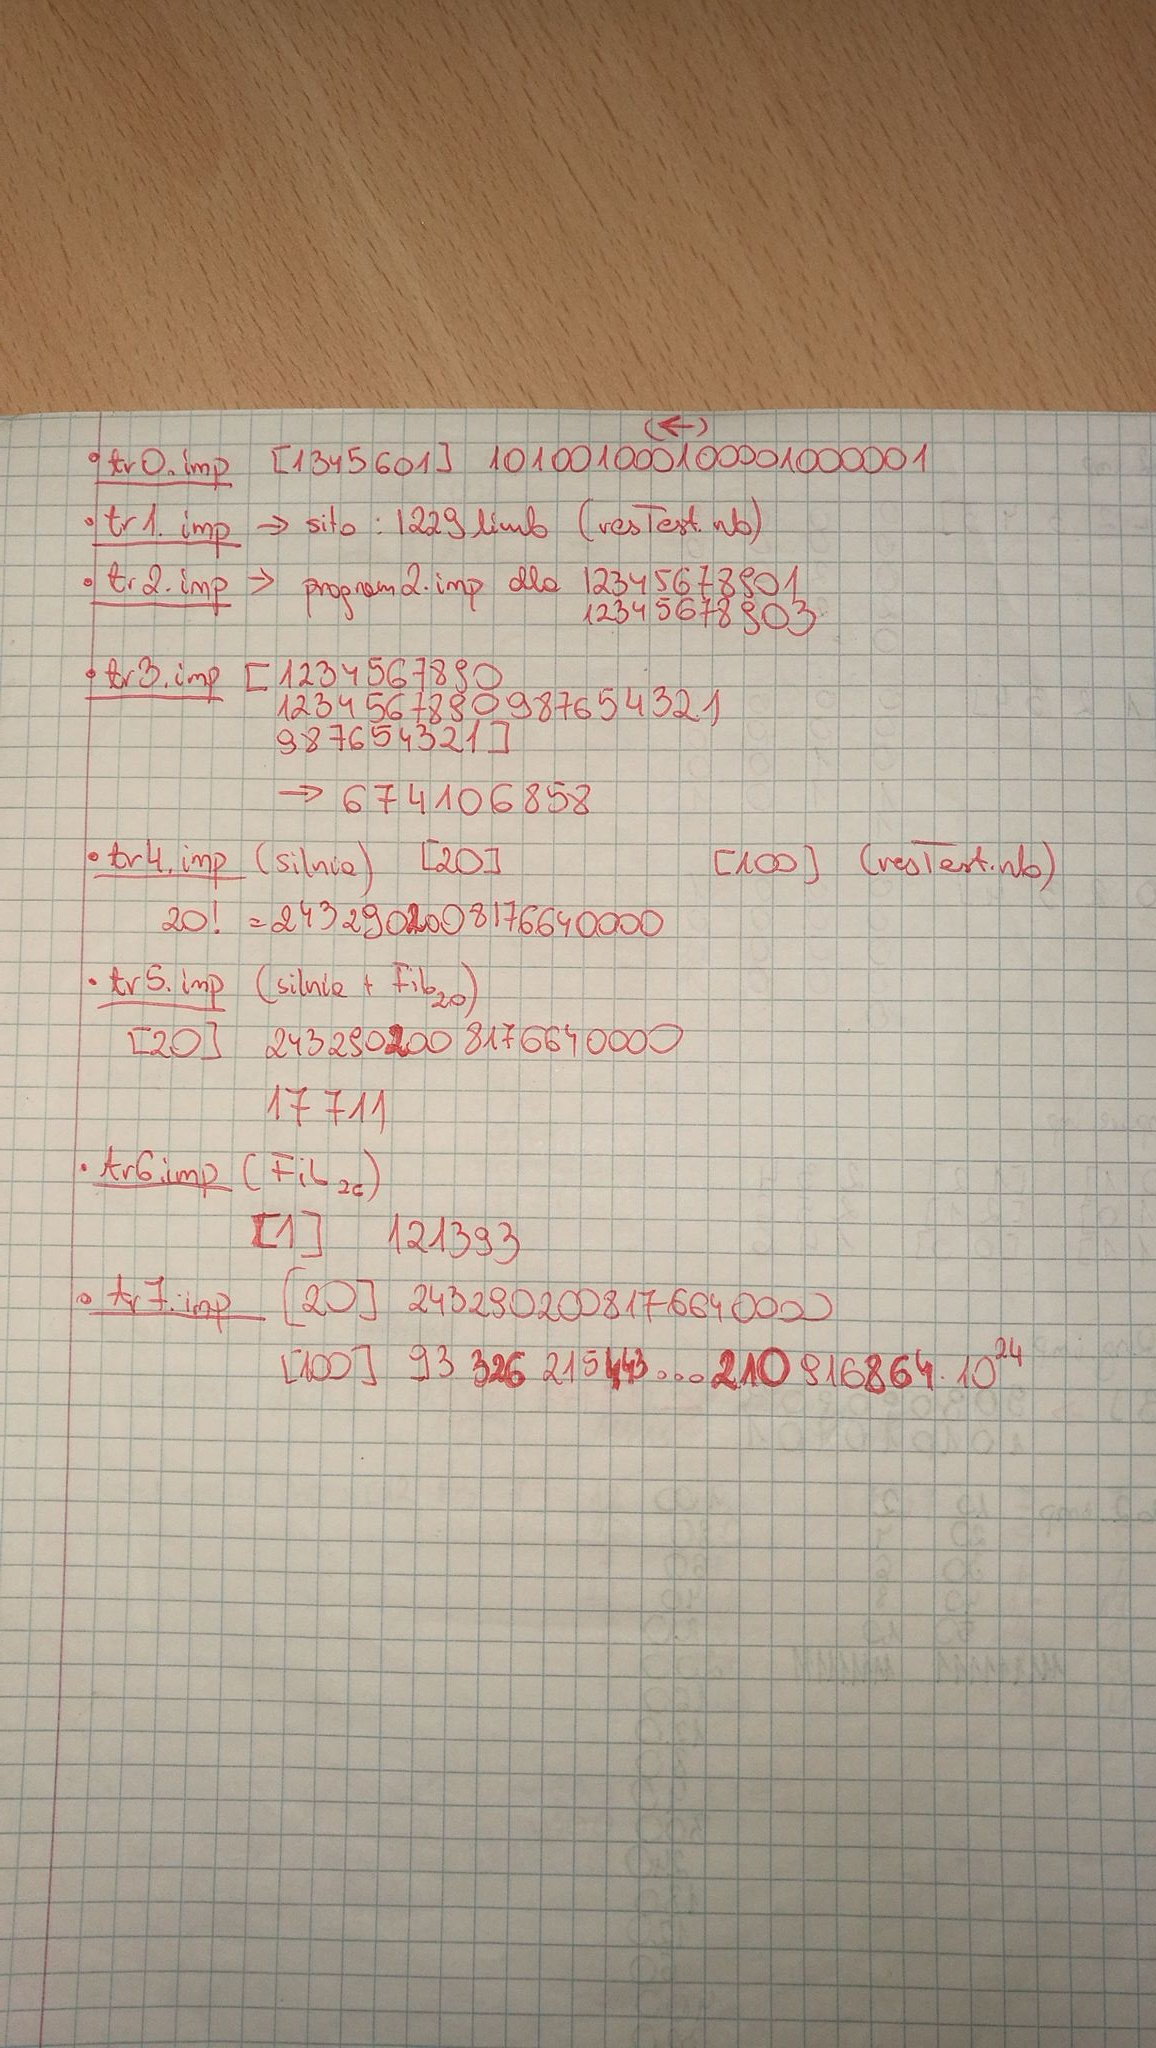 (←)
• tr0.imp [1345601] 101001000100001000001
• tr1.imp ⇒ sito : 1229 liczb (resTest.nb)
• tr2.imp ⇒ program2.imp dla 12345678901
12345678903
• tr3.imp [1234567890
1234567890987654321
987654321]
⇒ 674106858
• tr4.imp (silnia) [20] [100] (resTest.nb)
20! = 2432902008176640000
• tr5.imp (silnia + Fib₂₀)
[20] 2432902008176640000
17711
• tr6.imp (Fib₂₆)
[1] 121393
• tr7.imp [20] 2432902008176640000
[100] 93 326 215 443...210 916864·10²⁴